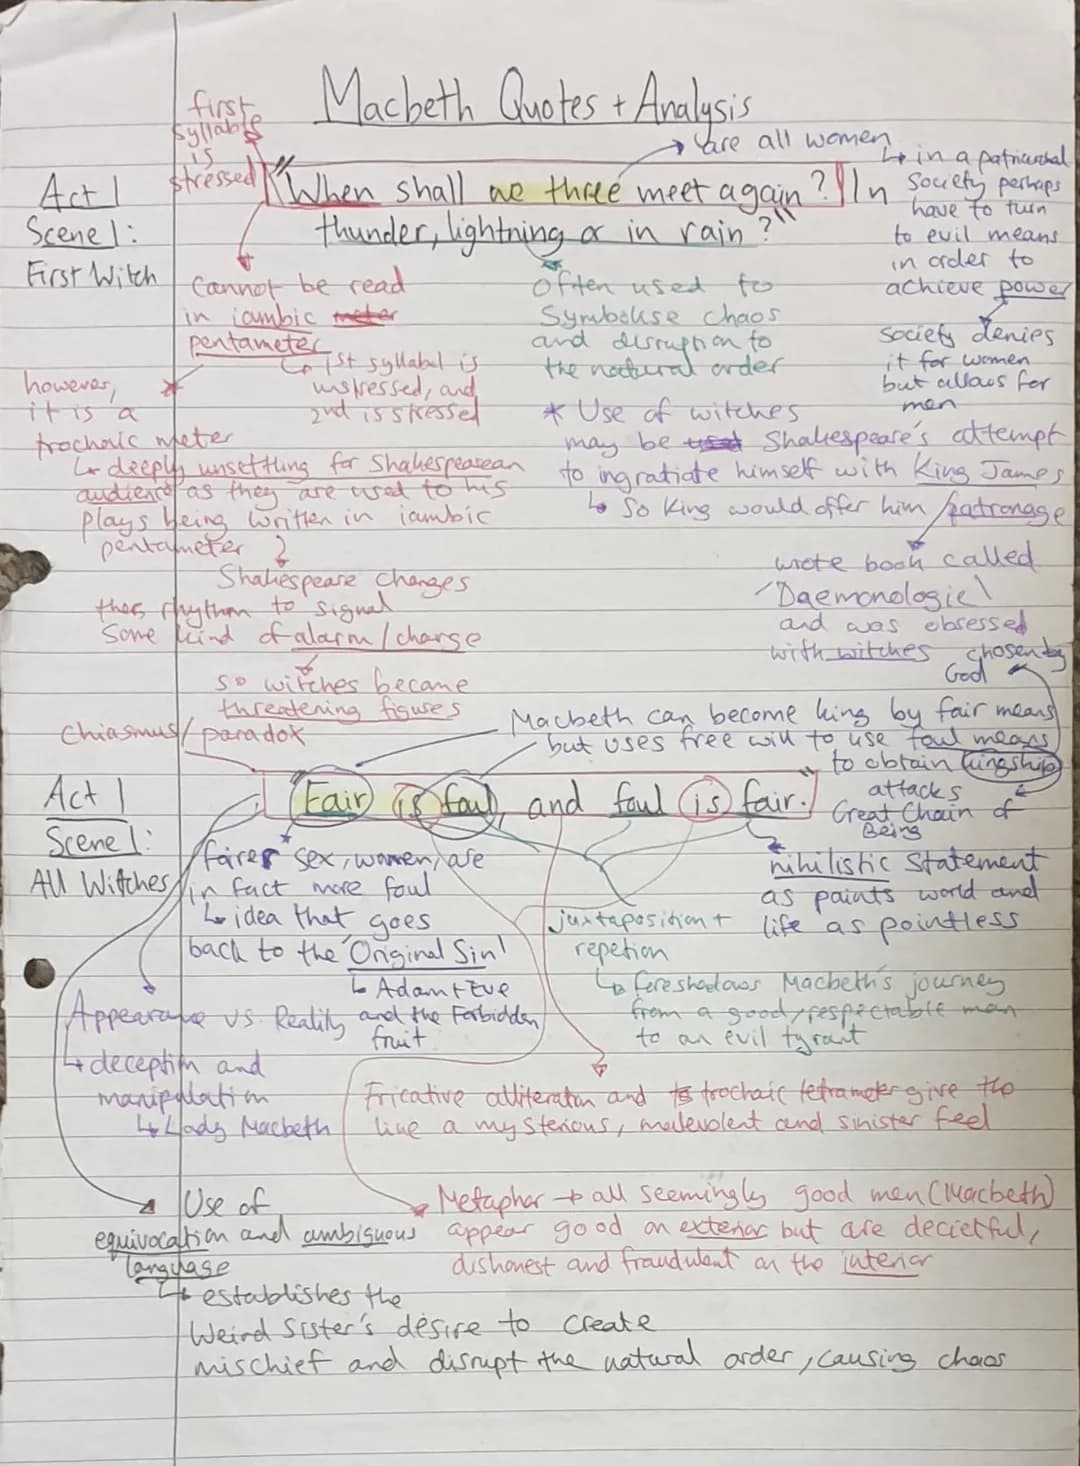 Macbeth Quotes + Analysis
first
syllable
is
stressed
are all women
in a patriarchal
society perhaps
have to turn
to evil means
in order to
achieve power
society denies
it for women
but allows for
men
Act 1
Scene 1:
First Witch
"When shall we three meet again? In
thunder, lightning or in rain?"
Cannot be read
in iambic meter
pentameter
1st syllabel is
unstressed, and
2nd is stressed
however,
it is a
trochaic meter
deeply unsettling for Shakespearean
audience as they are used to his
plays being written in iambic
pentameter
Shakespeare changes
the rhythm to signal
some kind of alarm/change
so witches became
threatening figures
Often used to
Symbolise chaos
and disruption to
the natural order
* Use of witches
may be used Shakespeare's attempt
to ingratiate himself with King James
So King would offer him patronage
wrote book called
'Daemonologie'
and was obsessed
with witches
chosen by
God
Chiasmus/paradox
Macbeth can become king by fair means
but uses free will to use foul means
to obtain kingship
attacks
Great Chain of
Being
Act 1
Scene 1:
All Witches
"Fair is foul, and foul is fair."
fairer sex, women, are
in fact more foul
idea that goes
back to the 'Original Sin'
Adam + Eve
and the Forbidden
fruit
nihilistic statement
as paints world and
life as pointless
juxtaposition +
repetion
foreshadows Macbeth's journey
from a good/respectable man
to an evil tyrant
Appearance vs. Reality
deception and
manipulation
Lady Macbeth
Fricative alliteration and trochaic tetrameter give the
line a mysterious, malevolent and sinister feel
Metaphor → all seemingly good men (Macbeth)
appear good on exterior but are decietful,
dishonest and fraudulent on the interior
Use of
equivocation and ambiguous
language
establishes the
Weird Sister's desire to create
mischief and disrupt the natural order, causing chaos